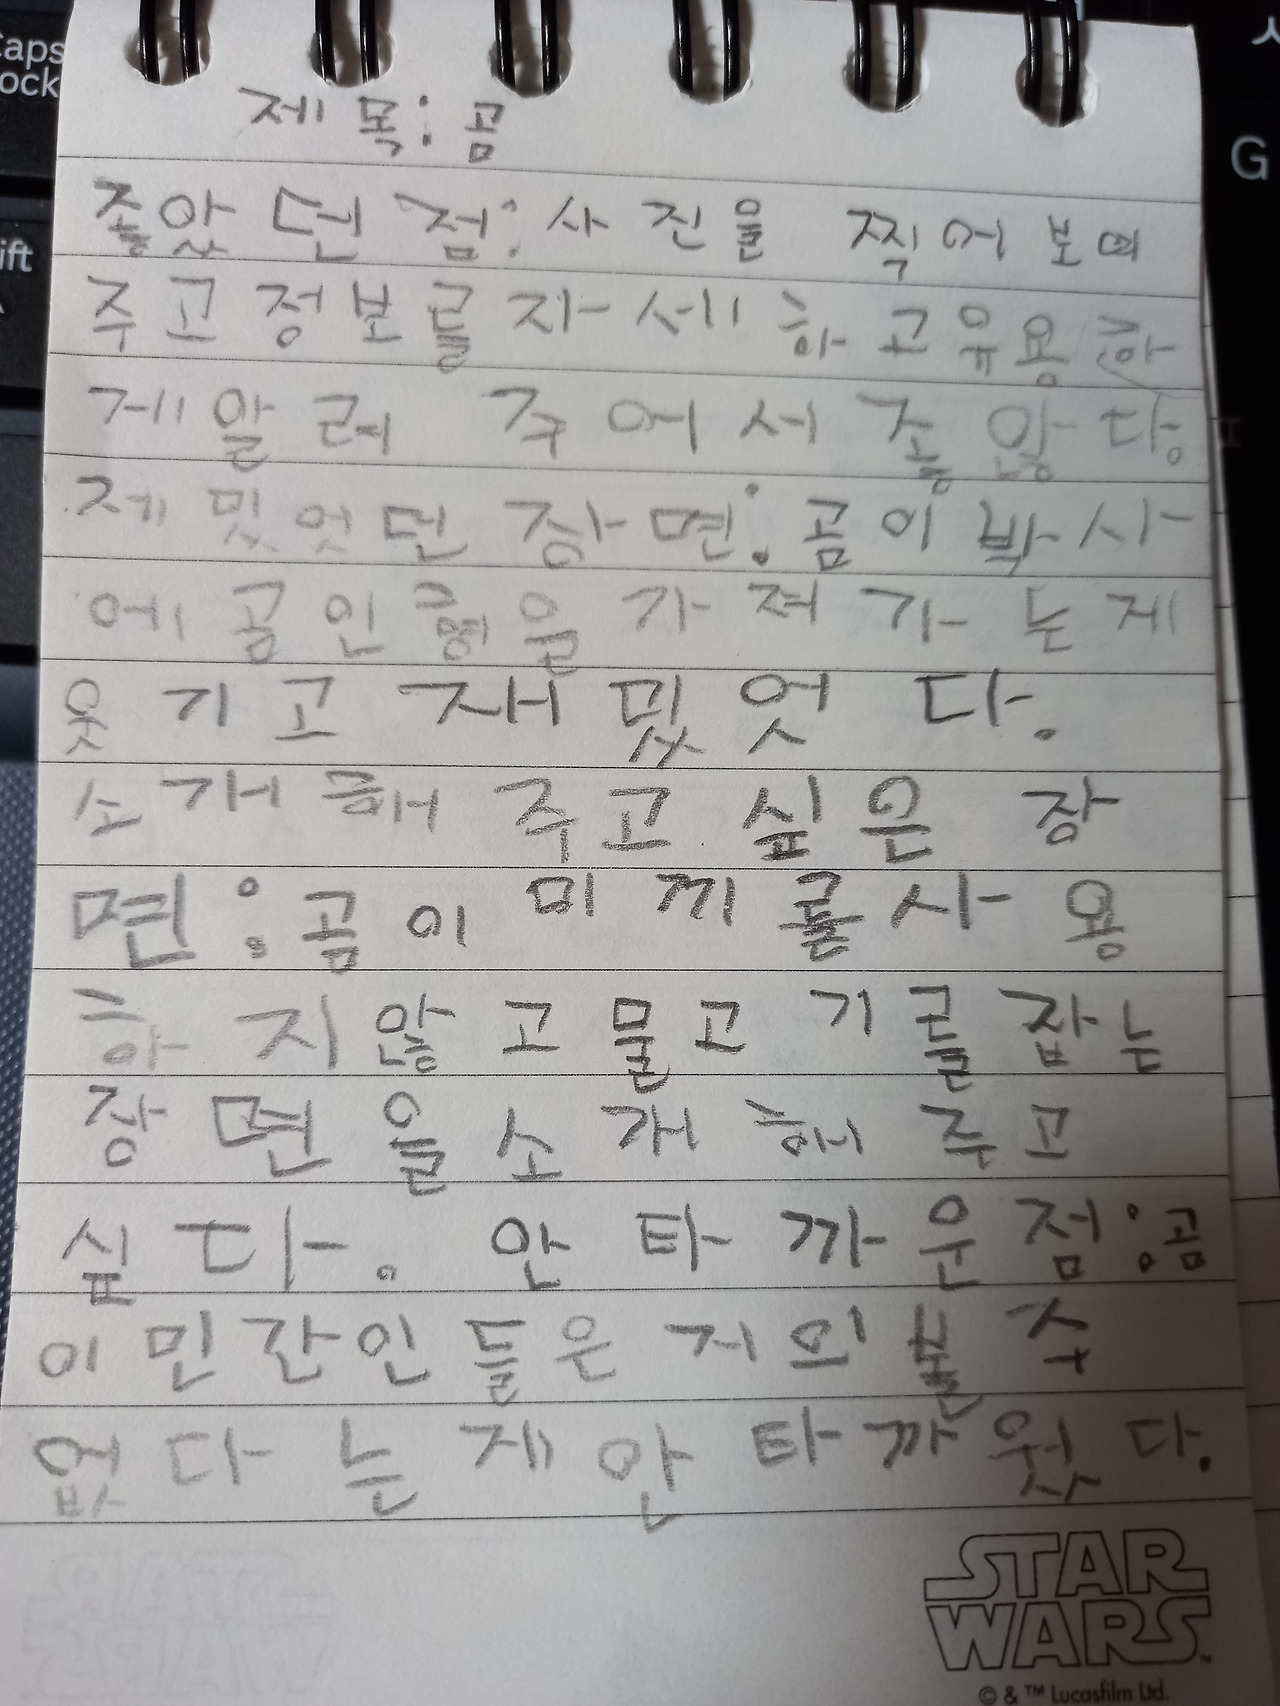 제목: 곰
좋았던 점: 사진을 찍어 보여
주고 정보를 자세하고 유용하
게 알려 주어서 좋았다.
제밌엇던 장면: 곰이 박사
에 곰인형을 가져가는게
웃기고 재밌엇다.
소개해 주고 싶은 장
면: 곰이 미끼를 사용
하지 않고 물고기를 잡는
장면을 소개해 주고
싶다. 안타까운 점: 곰
이 민간인들은 거의 볼 수
없다는게 안타까웠다.
STAR
WARS
© & ™ Lucasfilm Ltd.
Caps
Lock
Shift
G